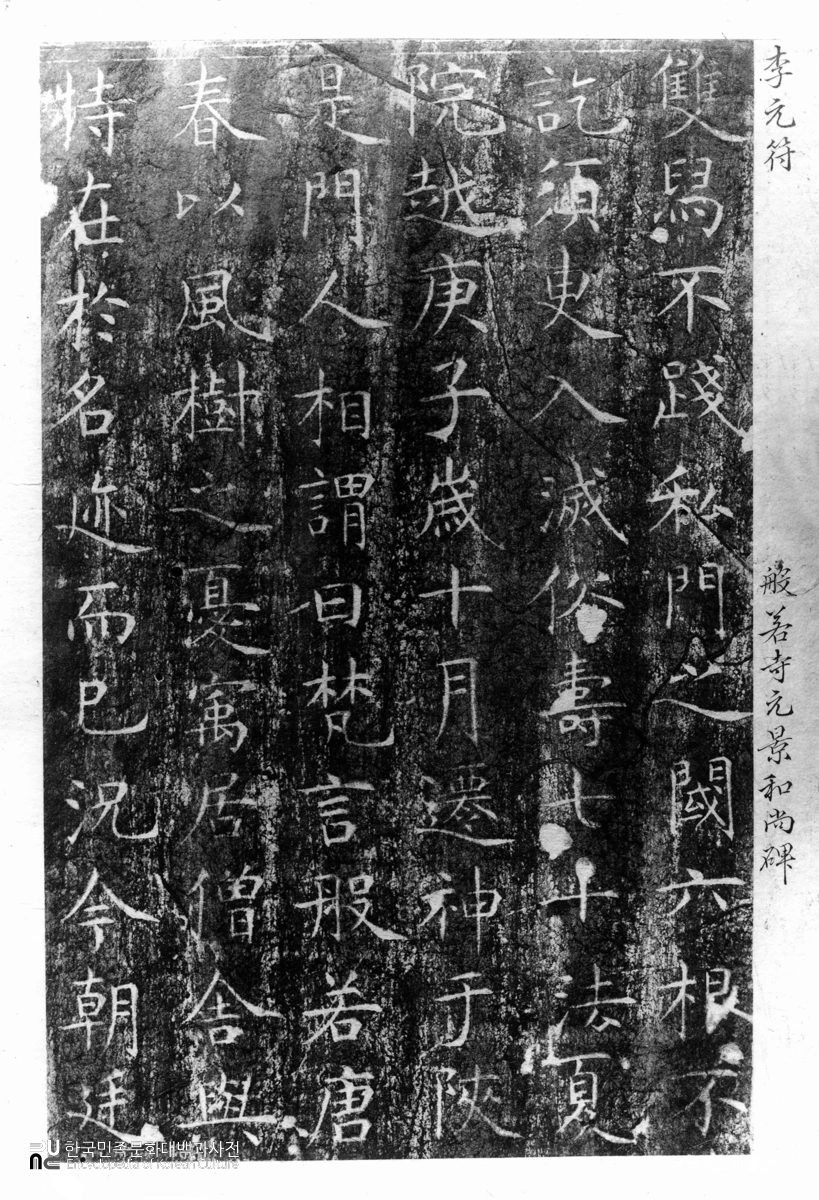 李元符 般若寺元景和尚碑
雙舄不踐私門之閾六根不
訖須臾入滅俗壽七十法夏
院越庚子歲十月遷神于陝
是門人相謂曰梵言般若唐
春以風樹之憂寓居僧舍與
特在於名迹而已況今朝廷
한국민족문화대백과사전
Encyclopedia of Korean Culture